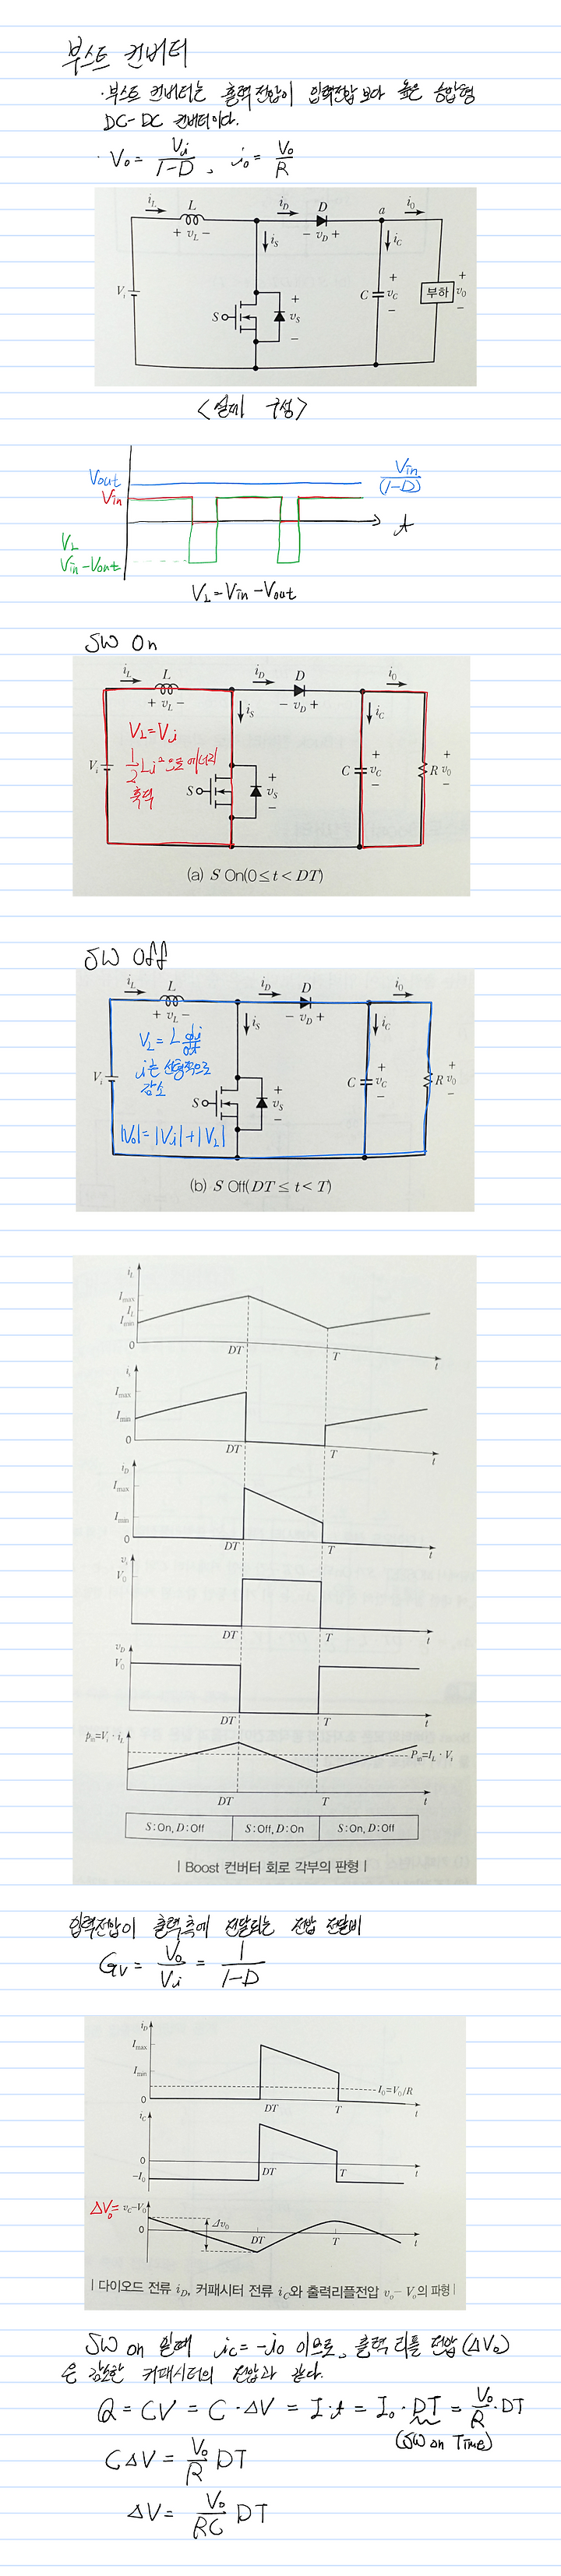 부스트 컨버터
· 부스트 컨버터는 출력전압이 입력전압 보다 높은 승압형
DC-DC 컨버터이다.
· Vo = Vi/(1-D), io = Vo/R
iL L iD D a i0
+ vL - iS - vD + iC
Vi S + vS - C + vC - 부하 + v0 -
<실제 구성>
Vout Vin/(1-D)
Vin
t
VL
Vin-Vout
VL = Vin - Vout
SW On
iL L iD D i0
+ vL - iS - vD + iC
VL = Vi
1/2 Li²으로 에너지
축적
Vi S + vS - C + vC - R + v0 -
(a) S On(0≤t<DT)
SW Off
iL L iD D i0
+ vL - iS - vD + iC
VL = L di/dt
i는 선형적으로
감소
|Vo| = |Vi| + |VL|
Vi S + vS - C + vC - R + v0 -
(b) S Off(DT≤t<T)
iL
Imax
IL
Imin
0 DT T t
is
Imax
Imin
0 DT T t
iD
Imax
Imin
0 DT T t
vs
V0
DT T t
vD
V0
DT T t
pin=Vi·iL Pin=IL·Vi
DT T t
S:On, D:Off S:Off, D:On S:On, D:Off
| Boost 컨버터 회로 각부의 파형 |
입력전압이 출력측에 전달되는 전압 전달비
Gv = Vo/Vi = 1/(1-D)
iD
Imax
Imin
I0=V0/R
0 DT T t
iC
0 DT T t
-I0
ΔVo= vC-V0 Δv0
0 DT T t
| 다이오드 전류 iD, 커패시터 전류 iC와 출력리플전압 vo-Vo의 파형 |
SW on 일때 ic = -io 이므로, 출력 리플 전압(ΔVo)
은 감소한 커패시터의 전압과 같다.
Q = CV = C·ΔV = I·t = Io·DT = Vo/R·DT
(SW on Time)
CΔV = Vo/R DT
ΔV = Vo/RC DT